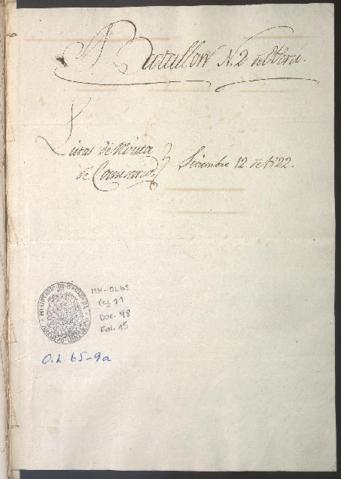 Batallon N.2 de
Listas de Revista
de Comisario
Diciembre 12 de 1822.
MH-OL65
Caj 71
Doc. 98
Fol. 15
O.L. 65-9a